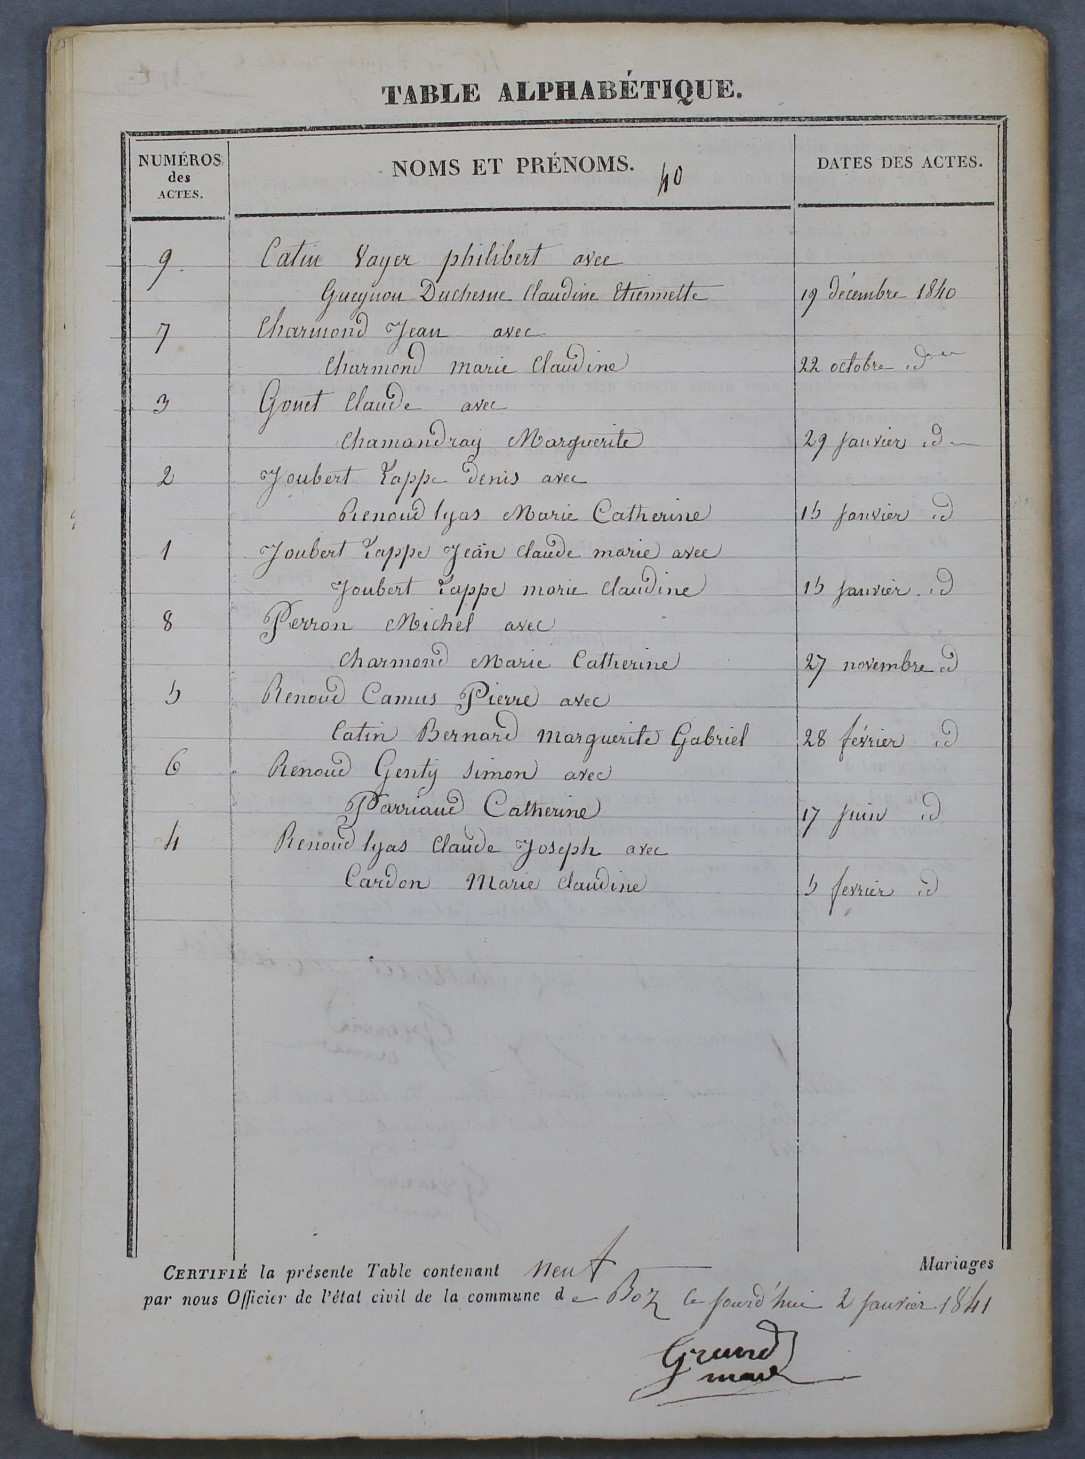 TABLE ALPHABÉTIQUE.
NUMÉROS des ACTES.
NOMS ET PRÉNOMS.
40
DATES DES ACTES.
9 Catin Vayer philibert avec
Gueynou Duchesne Claudine Etiennette 19 décembre 1840
7 Charmond Jean avec
Charmond marie Claudine 22 octobre id
3 Gouet Claude avec
Chamandray Marguerite 29 janvier id
2 Joubert Lappe denis avec
Renoud lyas Marie Catherine 15 janvier id
1 Joubert Lappe Jean Claude marie avec
Joubert Lappe marie Claudine 15 janvier id
8 Perron Michel avec
Charmond Marie Catherine 27 novembre id
5 Renoud Camus Pierre avec
Catin Bernard Marguerite Gabriel 28 février id
6 Renoud Genty Simon avec
Parriaud Catherine 17 juin id
4 Renoud lyas Claude Joseph avec
Cardon Marie Claudine 5 fevrier id
CERTIFIÉ la présente Table contenant neuf Mariages
par nous Officier de l'état civil de la commune de Boz ce jourd'hui 2 janvier 1841